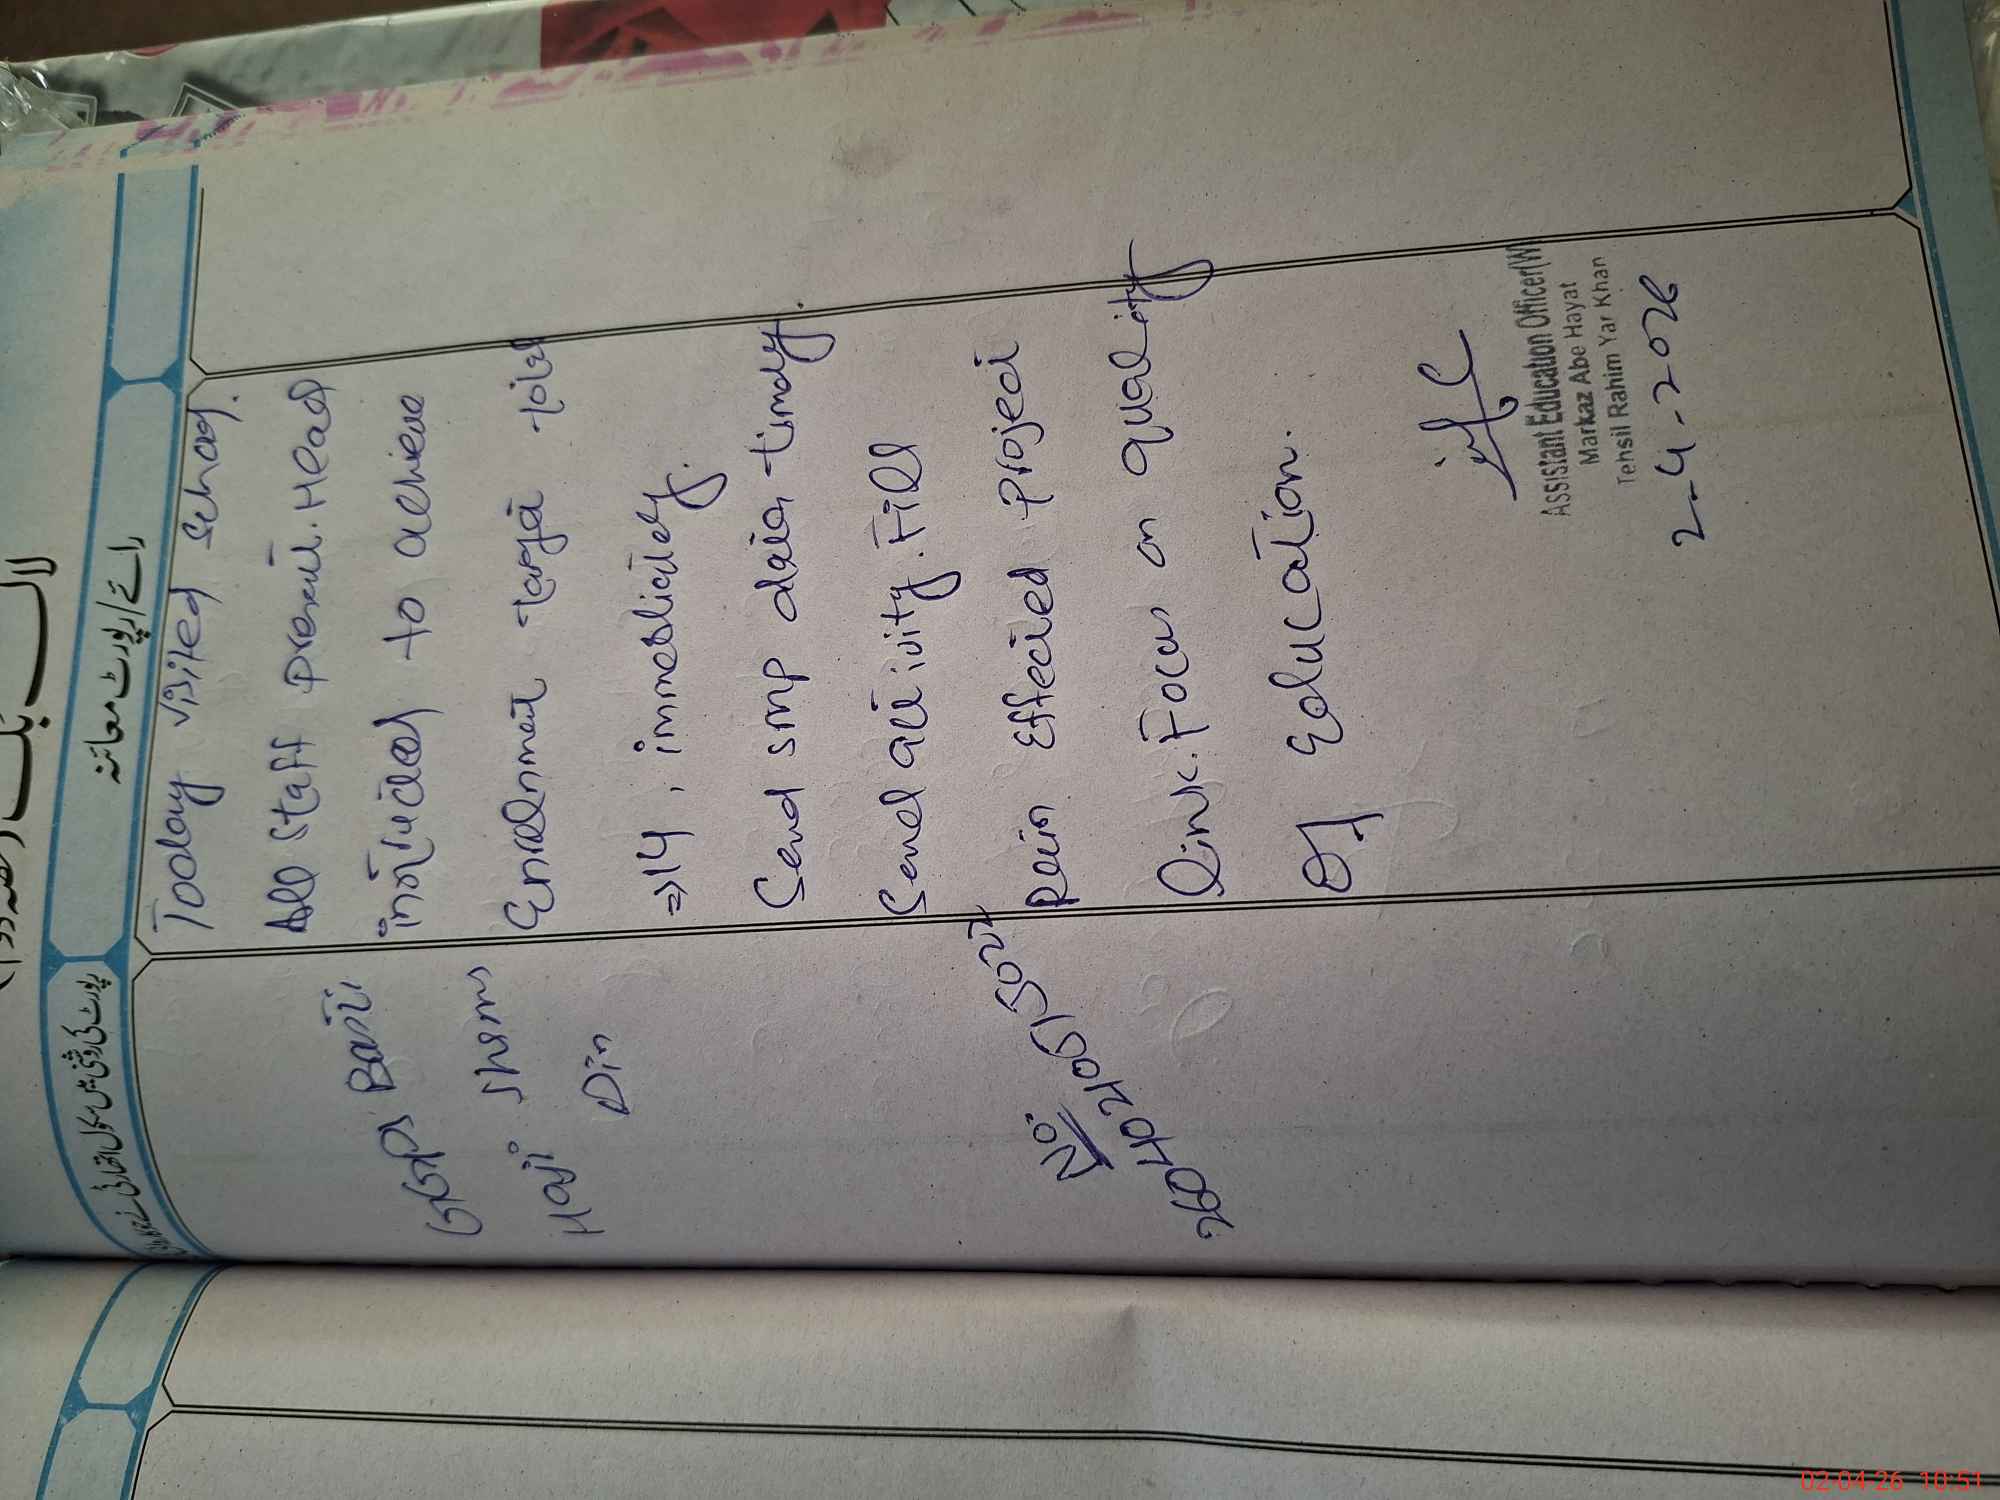 لاگ بک
رائے / رپورٹ معائنہ
Today visited school.
All staff present. Head
instructed to achieve
Enrolment target total
=> 14, immediately.
Send smp data timely.
Send activity. Fill
Rain effected project
link. Focus on quality
of Education.
GGPS Basti
Haji Shams
Din
No.
Assistant Education Officer(W)
Markaz Abe Hayat
Tehsil Rahim Yar Khan
2-4-2026
02-04-26 10:51